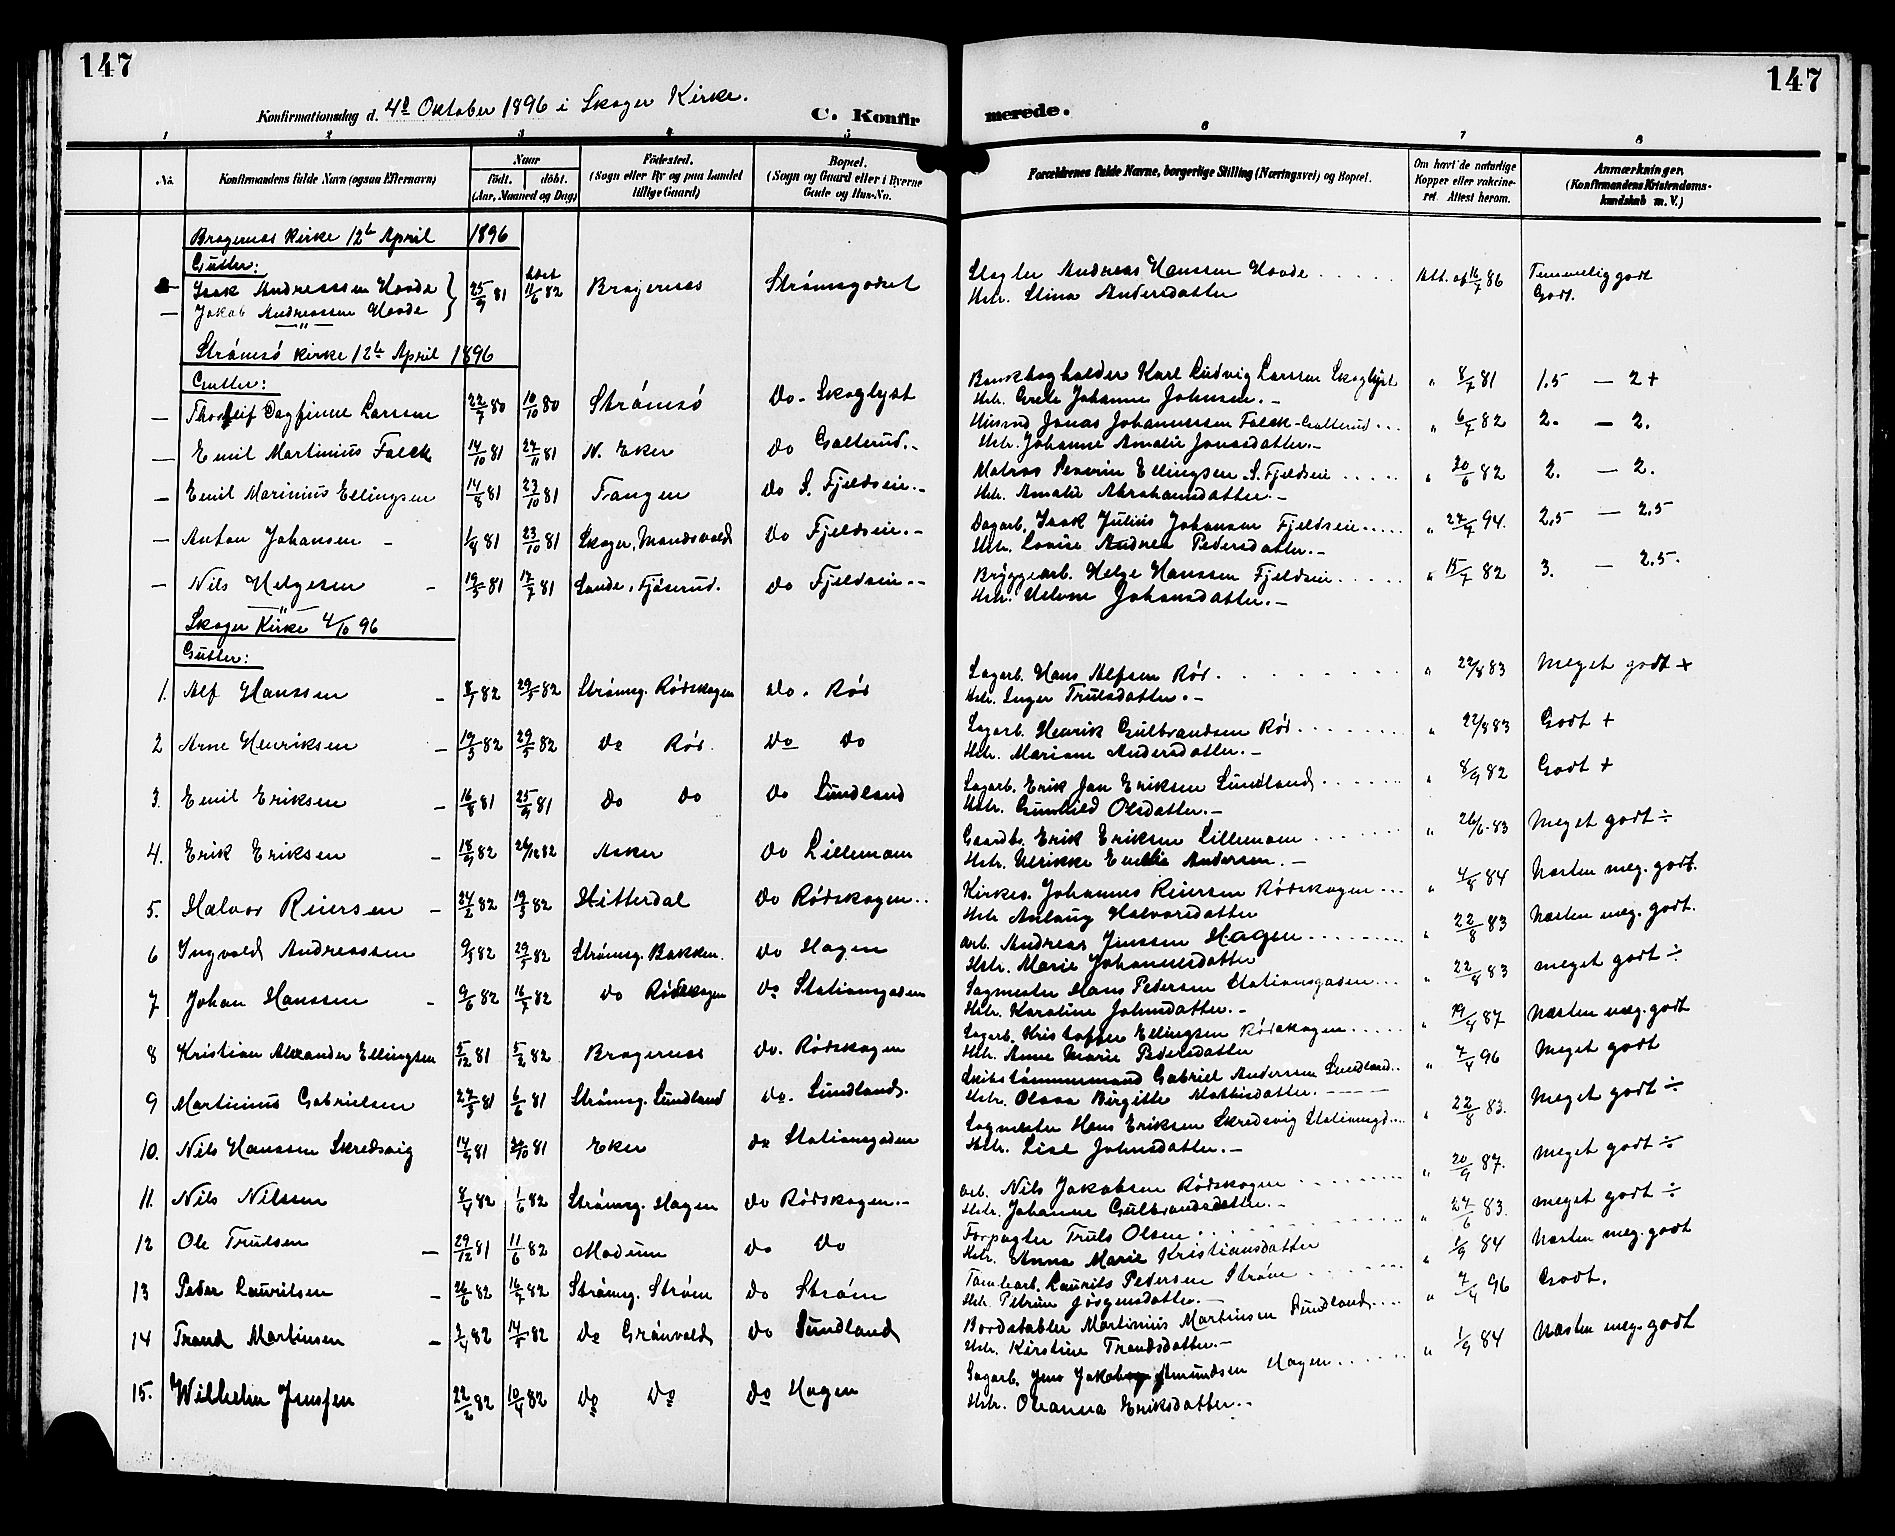 147
147
Konfirmationsdag d. 4de Oktober 1896 i Skoger Kirke.
C. Konfirmerede.
1 2 3 4 5 6 7 8
No.
Konfirmandens fulde Navn (ogsaa Efternavn)
Naar
født. døbt.
(Aar, Maaned og Dag)
Fødested.
(Sogn eller By og paa Landet
tillige Gaard)
Bopæl.
(Sogn og Gaard eller i Byerne
Gade og Hus-No.
Forældrenes fulde Navne, borgerlige Stilling (Næringsvei) og Bopæl.
Om havt de naturlige
Kopper eller vakcine-
ret. Attest herom.
Anmærkninger.
(Konfirmandens Kristendoms-
kundskab m. V.)
Bragernes Kirke 12te April 1896
Gutter:
— Isak Andreassen Hovde } 25/9 81 11/6 82 Bragernes Strømsgodset Andreas Hanssen Hovde Att. af 16/7 86 Temmelig godt
— Jakob Andreassen Hovde Hstr. Stina Andersdatter Godt.
Strømsø Kirke 12te April 1896
Gutter:
— Thorleif Dagfinne Larssen 22/7 80 10/10 80 Strømsø Do - Skoglyst Bankbogholder Karl Ludvig Larssen Skoglyst " 8/7 81 1.5 — 2 +
Hstr. Grele Johanne Johnsen. —
— Emil Martinius Falck 14/10 81 27/11 81 N. Eker Do Galterud. - Husmd Jonas Johannessen Falck - Galterud " 6/7 82 2. — 2.
Hstr. Johanne Amalie Jonasdatter. —
— Emil Marinius Ellingsen 14/8 81 23/10 81 Tangen Do S. Fjeldseie. - Matros Severin Ellingsen S. Fjeldseie " 30/6 82 2. — 2.
Hstr. Amalie Abrahamsdatter. —
— Anton Johansen - 1/9 81 23/10 81 Skoger, Mandsvold Do Fjeldseie. - Dagarb. Isak Julius Johansen Fjeldseie " 27/9 94. 2,5 — 2,5
Hstr. Lovise Andrea Pedersdatter. —
— Nils Helgesen - 19/5 81 17/7 81 Sande, Fjøserud. Do Fjeldseie. - Bryggearb. Helge Hanssen Fjeldseie " 15/7 82 3. — 2.5.
Hstr. Helene Johansdatter. —
Skoger Kirke 4/10 96
Gutter:
1. Alf Hanssen - 82 29/5 82 Strømsg. Rødskogen Do. Rød Sagarb. Hans Alfsen Rød " 22/8 83 Meget godt +
Hstr. Inger Trulsdatter. —
2 Arne Henriksen - 19/3 82 29/5 82 Do Rød. Do Do Sagarb. Henrik Gulbrandsen Rød " 22/8 83 Godt +
Hstr. Mariane Andersdatter. —
3. Emil Eriksen - 16/8 81 25/9 81 Do Do Do Sundland Sagarb. Erik Jan Eriksen Sundland " 8/9 82 Godt +
Hstr. Gunhild Olsdatter. —
4. Erik Eriksen - 18/9 82 26/12 82 Asker Do Lillemoen Gaardbr. Erik Eriksen Lillemoen " 26/6 83 Meget godt ÷
Hstr. Ulrikke Emelie Andersen. —
5. Halvor Reiersen - 24/2 82 19/3 82 Hitterdal Do Rødskogen Kirkes. Johannes Reiersen Rødskogen " 4/8 84 Næsten meg. godt.
Hstr. Aslaug Halvorsdatter
6 Ingvald Andreassen 9/5 82 29/5 82 Strømsg. Bakken. Do Hagen Arb. Andreas Jenssen Hagen " 22/8 83 Næsten meg. godt.
Hstr. Marie Johannesdatter
7 Johan Hanssen - 9/6 82 16/7 82 Do Rødskogen Do Stationsgaden Sagmester Hans Pedersen Stationsgaden " 22/8 83 meget godt ÷
Hstr. Karoline Johnsdatter. —
8 Kristian Alexander Ellingsen 5/12 81 5/2 82 Bragernes Do. Rødskogen Sagarb. Kristoffer Ellingsen Rødskogen " 19/4 87 Næsten meg. godt
Hstr. Anne Marie Pedersdatter
9 Martinius Gabrielsen 27/3 81 6/6 81 Strømsg. Sundland Do. Sundland. Skibstømmermand Gabriel Andersen Sundland " 7/4 96 Meget godt
Hstr. Olava Birgitte Mathisdatter.
10. Nils Hanssen Skredsvig 14/9 81 81 Eker Do Stationsgaden Sagmester Hans Eriksen Skredsvig Stationsgd. " 22/8 83. Meget godt ÷
Hstr. Lise Johnsdatter. —
11. Nils Nilssen 8/4 82 1/6 82 Strømsg. Hagen Do Rødskogen. Arb. Nils Jakobsen Rødskogen " 20/9 87. Meget godt ÷
Hstr. Johanne Gulbrandsdatter. —
12 Ole Trulsen — 29/12 81 11/6 82 Modum Do Do Forpagter Truls Olsen " 27/6 83. meget godt ÷
Hstr. Anna Marie Kristiansdatter
13 Peder Lauritsen — 26/6 82 16/7 82 Strømsg. Strøm Do Strøm Tomtearb. Laurits Pedersen Strøm " 1/9 84 Næsten meg. godt
Hstr. Petrine Jørgensdatter. —
14 Trond Martinsen — 2/4 82 14/5 82 Do Grønvold Do Sundland Bordstabler Martinius Martinsen Sundland " 7/4 96 Godt.
Hstr. Kirstine Trondsdatter. —
15. Wilhelm Jenssen 22/2 82 10/4 82 Do Do Do Hagen Sagarb. Jens Jakob Amundsen Hagen " 1/9 84 Næsten meg. godt
Hstr. Oleanna Eriksdatter. -